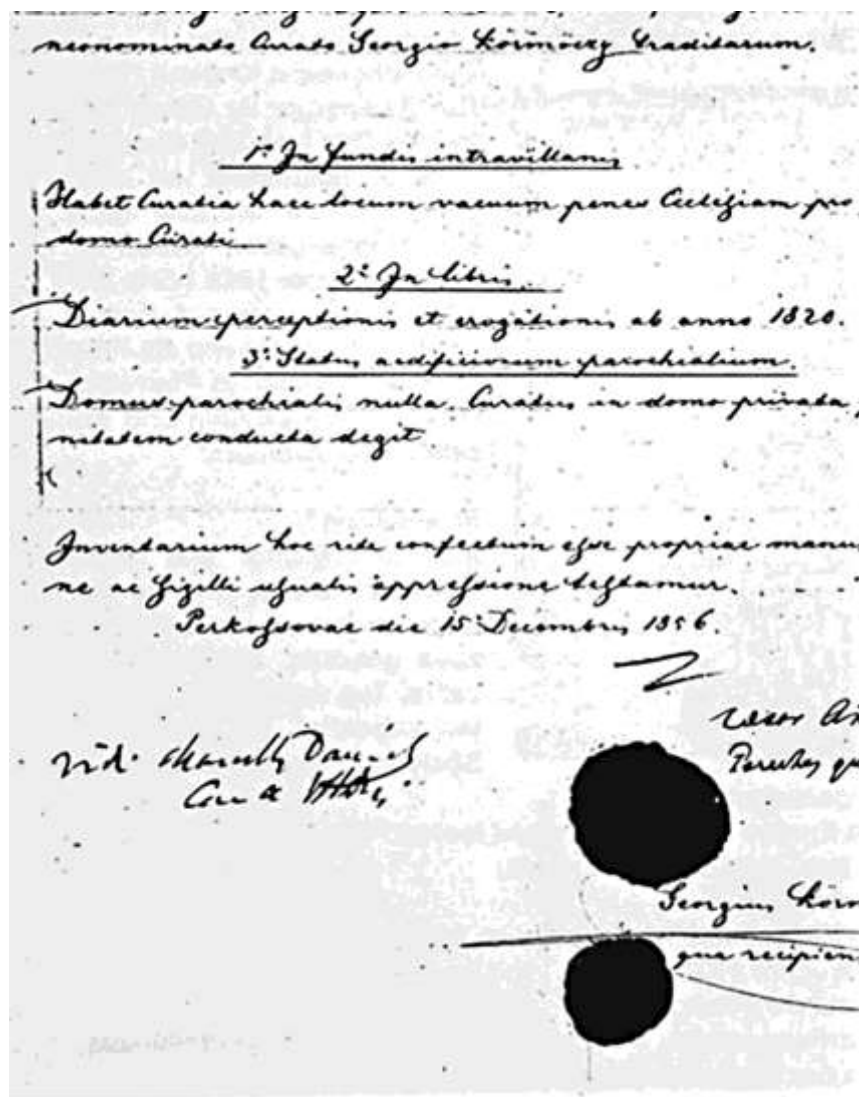 neonominato Curato Georgio Körmöczy traditarum.
1º In fundis intravillanis
Habet Curatia haec locum vacuum penes Ecclesiam pro
domo Curati
2º In libris.
Diarium perceptionis et erogationis ab anno 1820.
3º Status aedificiorum parochialium.
Domus parochialis nulla. Curatus in domo privata,
conducta degit
Inventarium hoc rite confectum esse propriae manu
ne ac sigilli usualis appressione testamur.
Perkossovae die 15 Decembris 1856.
Vidi
Georgius Körm
qua recipien